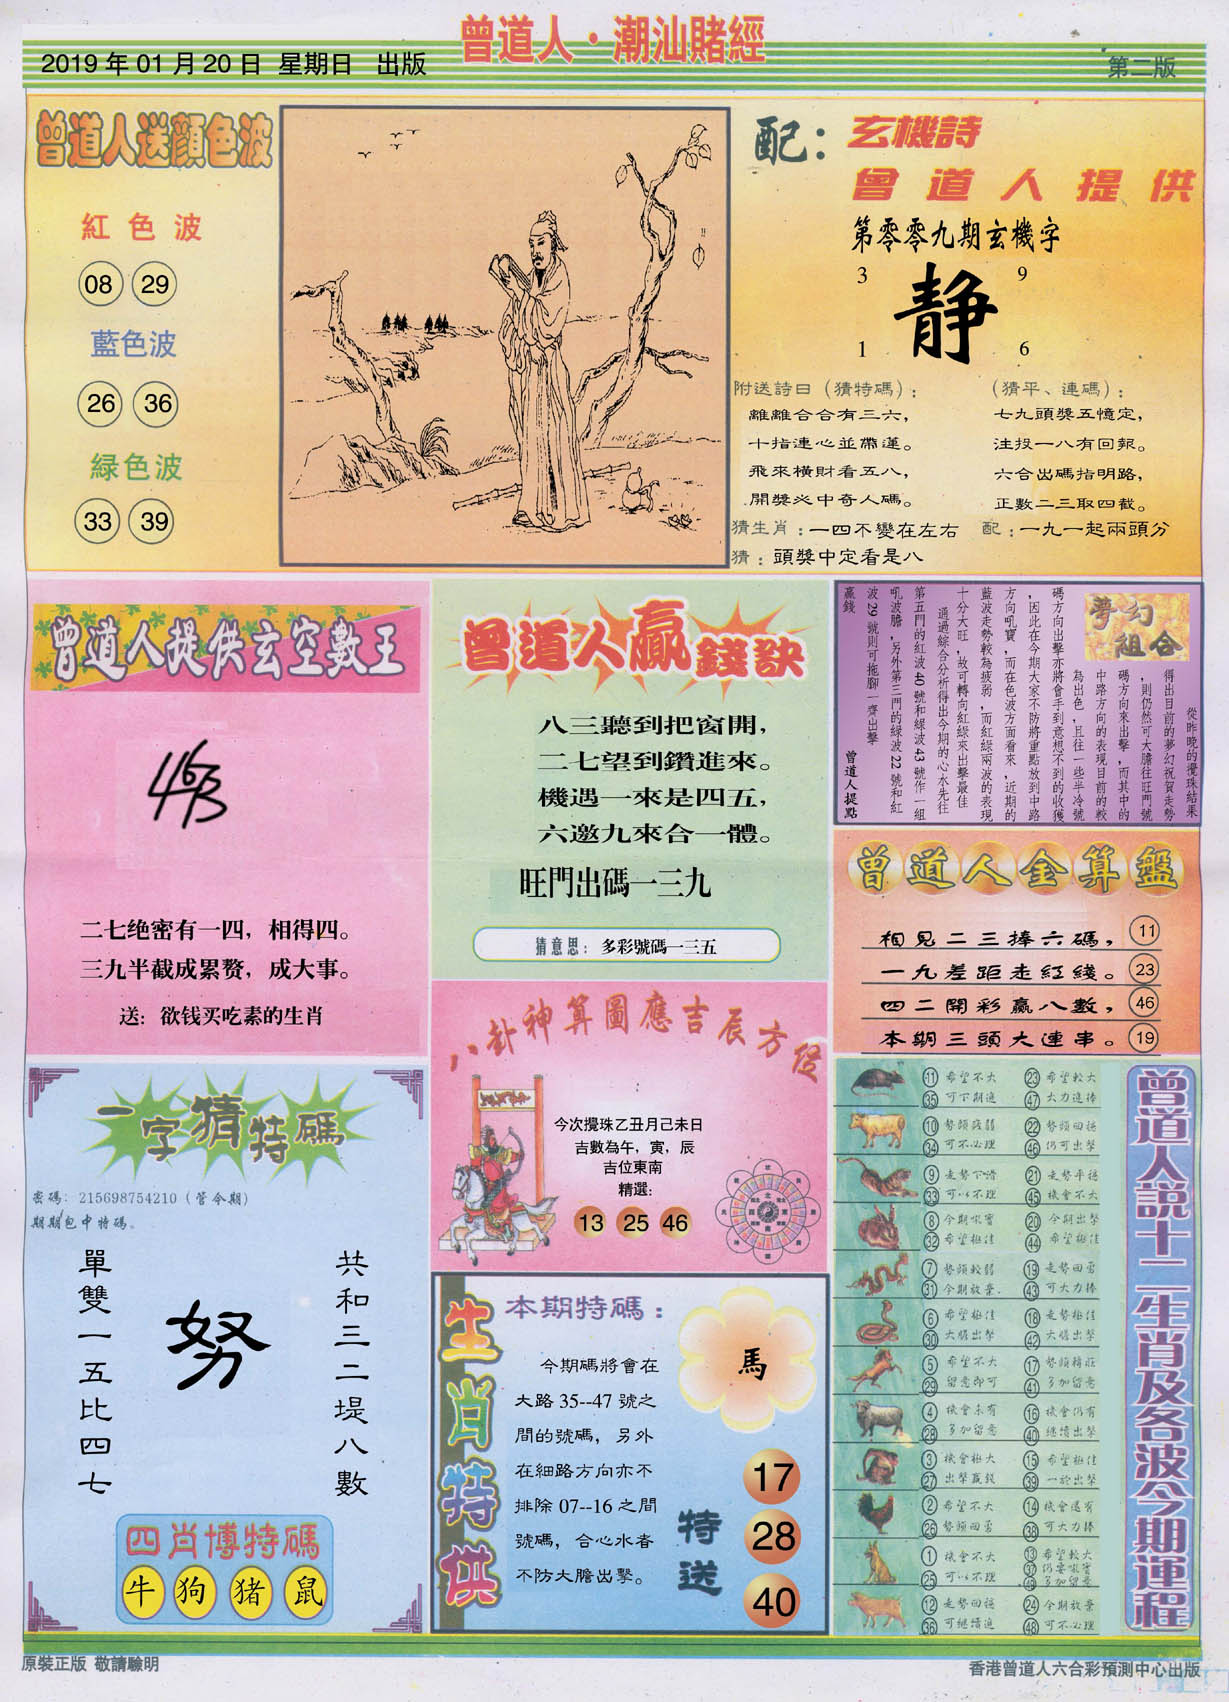 曾道人·潮汕賭經
2019年01月20日 星期日 出版
第二版
曾道人送顏色波
紅色波
08 29
藍色波
26 36
緑色波
33 39
配：玄機詩
曾道人提供
第零零九期玄機字
3 9
静
1 6
附送詩曰（猜特碼）：
離離合合有三六，
十指連心並帶運。
飛來橫財看五八，
開獎必中奇人碼。
（猜平、連碼）：
七九頭獎五憶定，
注投一八有回報。
六合出碼指明路，
正數二三取四截。
猜生肖：一四不變在左右
配：一九一起兩頭分
猜：頭獎中定看是八
曾道人提供玄空數王
463
二七绝密有一四，相得四。
三九半截成累赘，成大事。
送：欲钱买吃素的生肖
曾道人贏錢訣
八三聽到把窗開，
二七望到鑽進來。
機遇一來是四五，
六邀九來合一體。
旺門出碼一三九
猜意思：多彩號碼一三五
夢幻組合
從昨晚的攪珠結果
得出目前的夢幻祝賀走勢
，則仍然可大膽往旺門號
碼方向來出擊，而其中的
中路方向的表現目前的較
為出色，且往一些半冷號
碼方向出擊亦將會手到意想不到的收獲
，因此在今期大家不防將重點放到中路
方向吼寶，而在色波方面看來，近期的
藍波走勢較為疲弱，而紅綠兩波的表現
十分大旺，故可轉向紅綠來出擊最佳
通過綜合分析得出今期的心水先往
第五門的紅波40號和綠波43號作一組
吼波膽，另外第三門的綠波22號和紅
波29號則可拖腳一齊出擊
贏錢
曾道人提點
曾道人金算盤
相見二三捧六碼， 11
一九差距走紅綫。 23
四二開彩贏八數， 46
本期三頭大連串。 19
八卦神算圖應吉辰方位
今次攪珠乙丑月己未日
吉數為午，寅，辰
吉位東南
精選：
13 25 46
一字猜特碼
密碼：215698754210（管今期）
期期包中特碼。
單雙一五比四七
努
共和三二堤八數
四肖博特碼
牛 狗 猪 鼠
生肖特供
本期特碼：
今期碼將會在
大路35--47號之
間的號碼，另外
在細路方向亦不
排除07--16之間
號碼，合心水者
不防大膽出擊。
馬
特送
17
28
40
曾道人說十二生肖及各波今期運程
11 希望不大 23 希望較大
35 可下期追 47 大力追捧
10 勢頭疲弱 22 勢頭回穩
34 可不必理 46 仍可出擊
9 走勢下滑 21 走勢平穩
33 可以不理 45 機會不大
8 今期吼寶 20 今期出擊
32 希望極佳 44 希望極佳
7 勢頭較弱 19 走勢回勇
31 今期放棄 43 可大力捧
6 希望極佳 18 走勢極佳
30 大膽出擊 42 大膽出擊
5 希望不大 17 勢頭轉旺
29 留意即可 41 多加留意
4 機會未有 16 機會仍有
28 多加留意 40 繼續出擊
3 機會極大 15 希望極佳
27 出擊贏錢 39 一於出擊
2 希望不大 14 機會還有
26 勢頭回勇 38 可大力捧
1 機會不大 13 希望較大
37 仍要吼寶
25 可以不理 49 多加留意
12 走勢回穩 24 今期放棄
36 可繼續追 48 可不必理
原裝正版 敬請驗明
香港曾道人六合彩預測中心出版